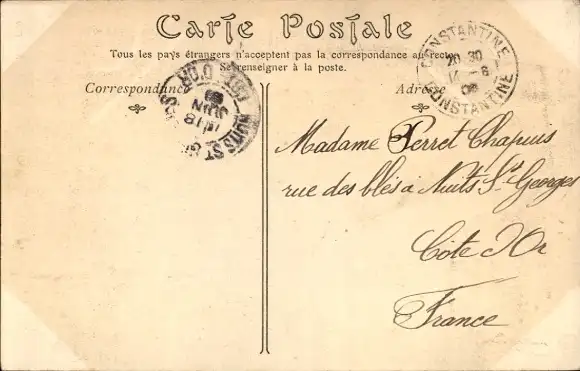 Carte Postale
Tous les pays étrangers n'acceptent pas la correspondance au recto
Se renseigner à la poste.
Correspondance
Adresse
CONSTANTINE
20 30
CONSTANTINE
CÔTE D'OR
JUIN
NUITS ST
Madame Perret Chapuis
rue des blés à Nuits St Georges
Côte d'Or
France